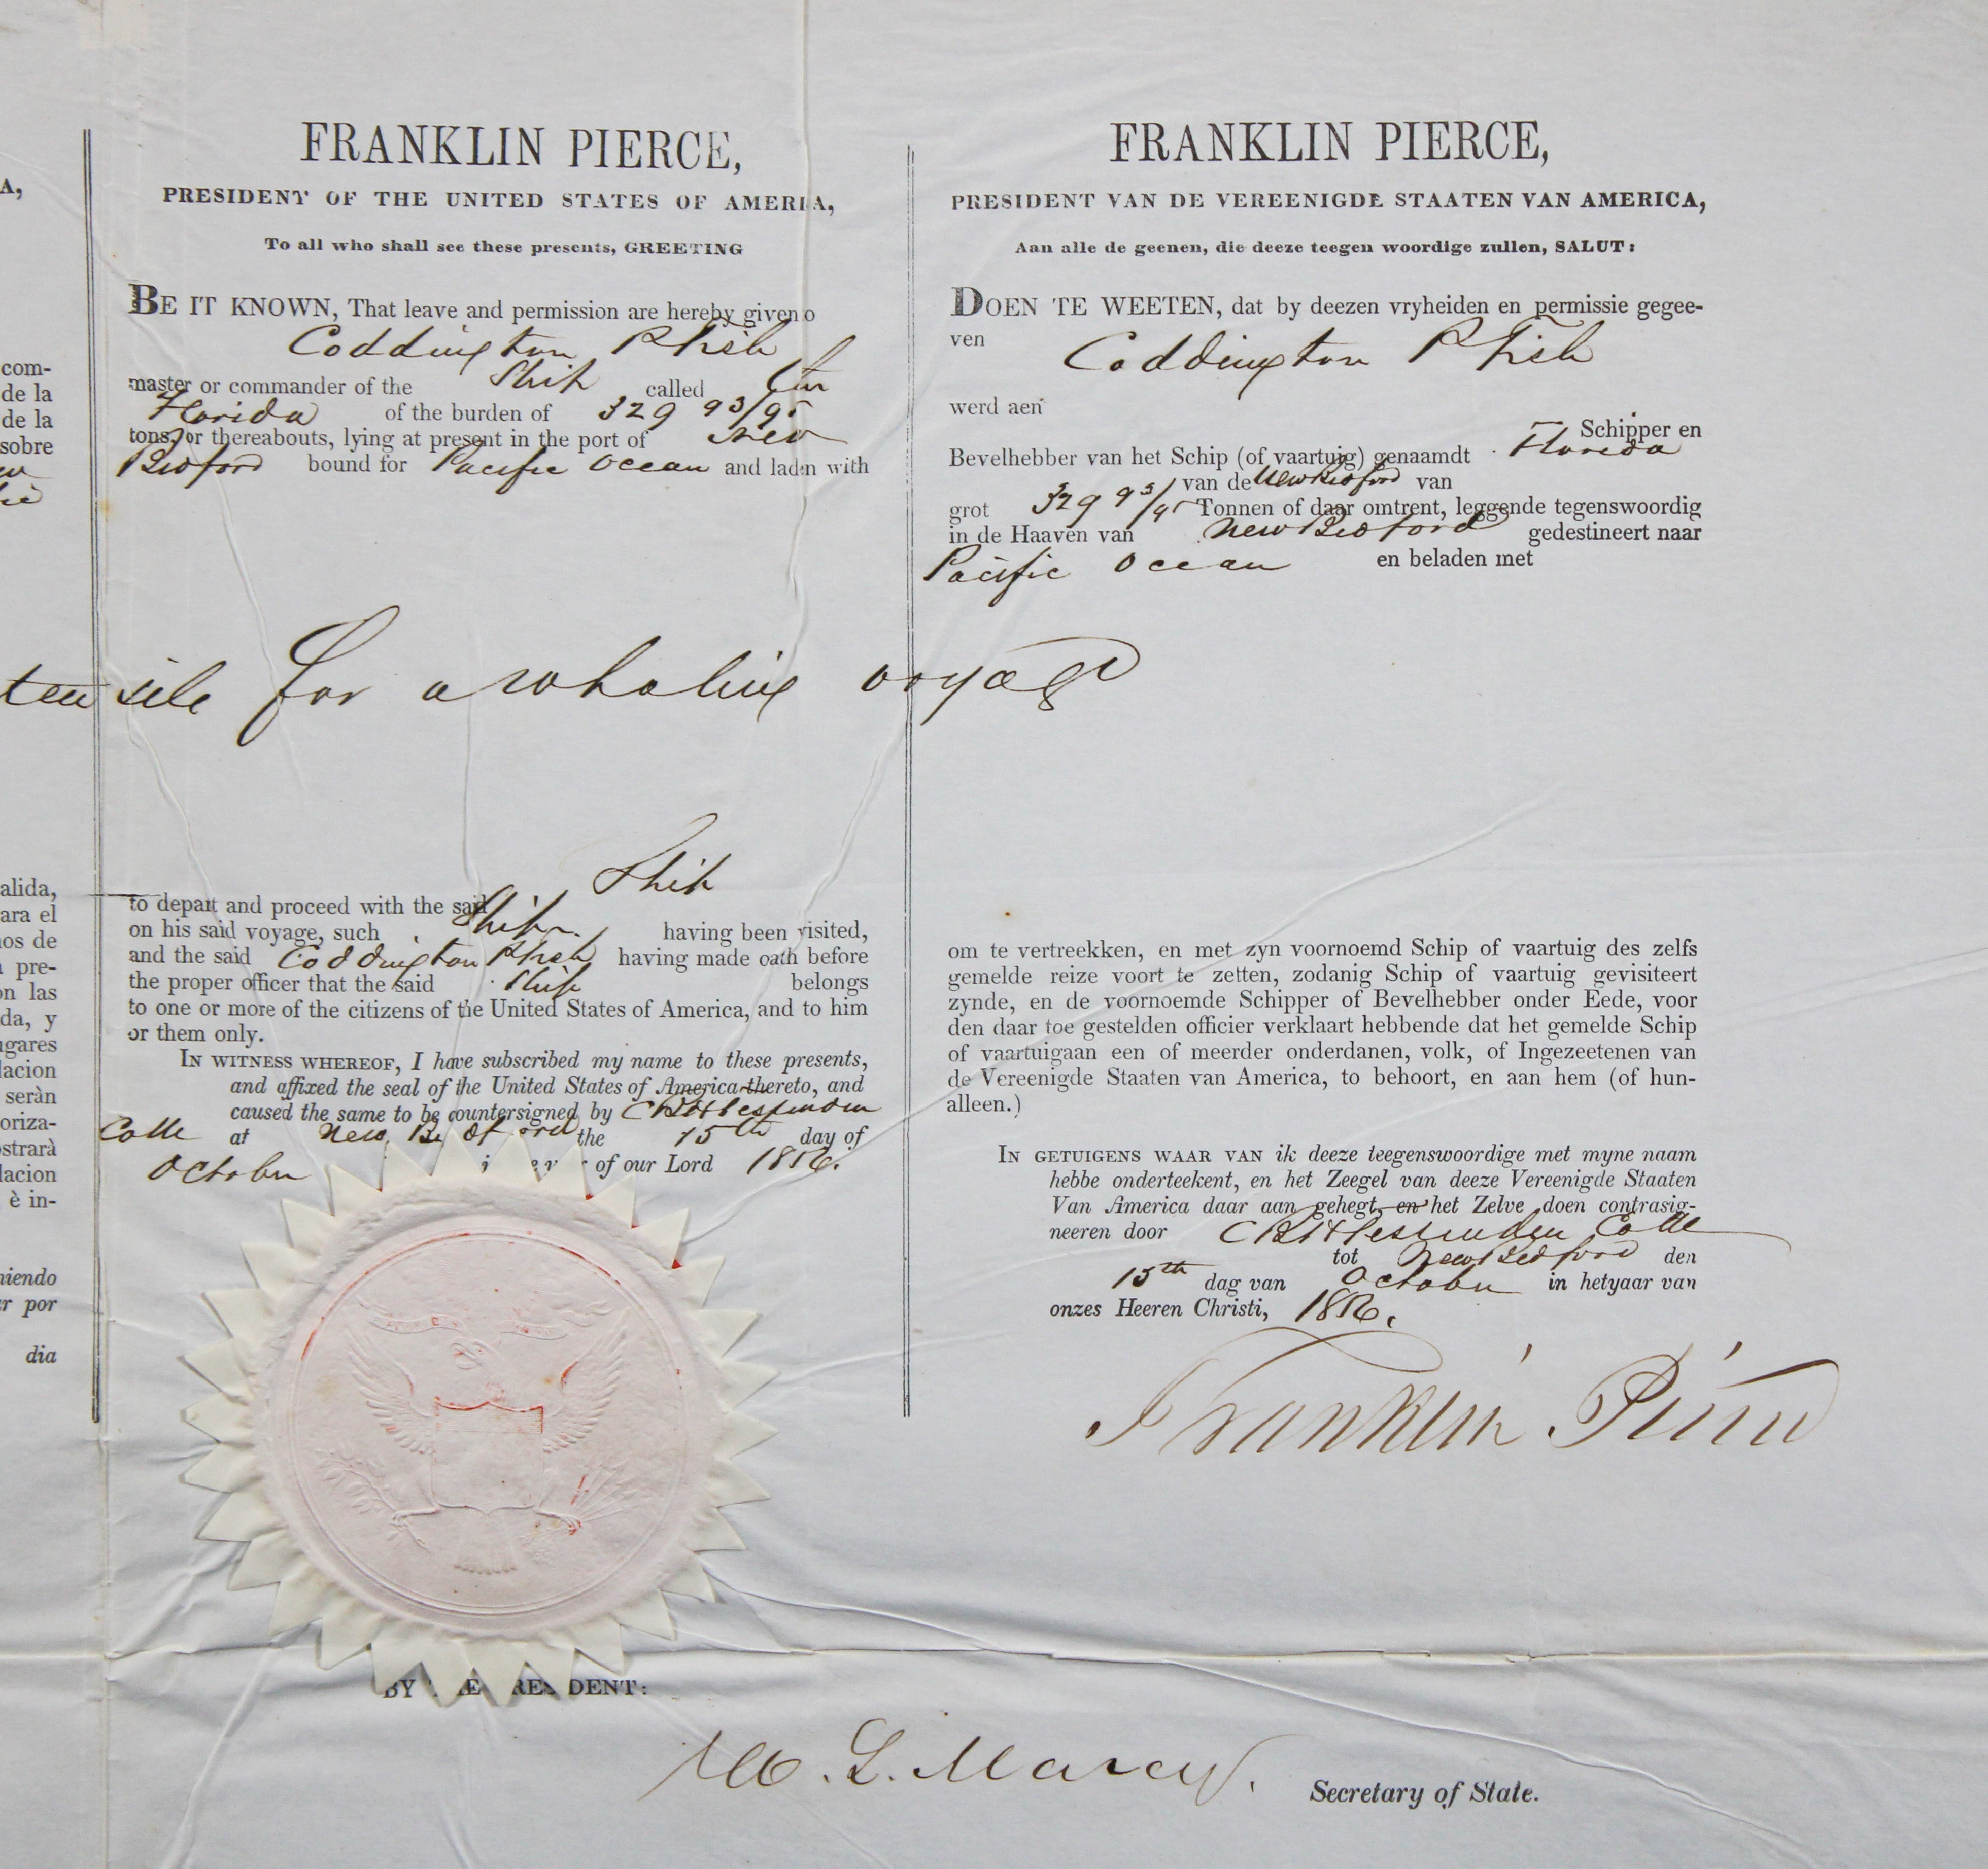 A,
com-
de la
de la
sobre
alida,
ara el
nos de
pre-
on las
da, y
ugares
lacion
seràn
oriza-
ostrarà
lacion
è in-
niendo
r por
dia
FRANKLIN PIERCE,
PRESIDENT OF THE UNITED STATES OF AMERI A,
To all who shall see these presents, GREETING
BE IT KNOWN, That leave and permission are hereby given o
Coddington P Fish
master or commander of the Ship called the
Florida of the burden of 329 93/95
tons, or thereabouts, lying at present in the port of New
Bedford bound for Pacific Ocean and laden with
tensils for a whaling voyage
Ship
to depart and proceed with the said
on his said voyage, such Ship having been visited,
and the said Coddington P Fish having made oath before
the proper officer that the said Ship belongs
to one or more of the citizens of the United States of America, and to him
or them only.
IN WITNESS WHEREOF, I have subscribed my name to these presents,
and affixed the seal of the United States of America thereto, and
caused the same to be countersigned by C B H Fessenden
Colle at New Bedford the 15th day of
October of our Lord 1856.
BY E RES DENT:
FRANKLIN PIERCE,
PRESIDENT VAN DE VEREENIGDE STAATEN VAN AMERICA,
Aan alle de geenen, die deeze teegen woordige zullen, SALUT:
DOEN TE WEETEN, dat by deezen vryheiden en permissie gegee-
ven Coddington P Fish
werd aen
Schipper en
Bevelhebber van het Schip (of vaartuig) genaamdt Florida
van de New Bedford van
grot 329 93/95 Tonnen of daar omtrent, leggende tegenswoordig
in de Haaven van New Bedford gedestineert naar
Pacific Ocean en beladen met
om te vertreekken, en met zyn voornoemd Schip of vaartuig des zelfs
gemelde reize voort te zetten, zodanig Schip of vaartuig gevisiteert
zynde, en de voornoemde Schipper of Bevelhebber onder Eede, voor
den daar toe gestelden officier verklaart hebbende dat het gemelde Schip
of vaartuigaan een of meerder onderdanen, volk, of Ingezeetenen van
de Vereenigde Staaten van America, to behoort, en aan hem (of hun-
alleen.)
IN GETUIGENS WAAR VAN ik deeze teegenswoordige met myne naam
hebbe onderteekent, en het Zeegel van deeze Vereenigde Staaten
Van America daar aan gehegt, en het Zelve doen contrasig-
neeren door C B H Fessenden Colle
tot New Bedford den
15th dag van October in hetyaar van
onzes Heeren Christi, 1856.
Franklin Pierce
W. L. Marcy.
Secretary of State.